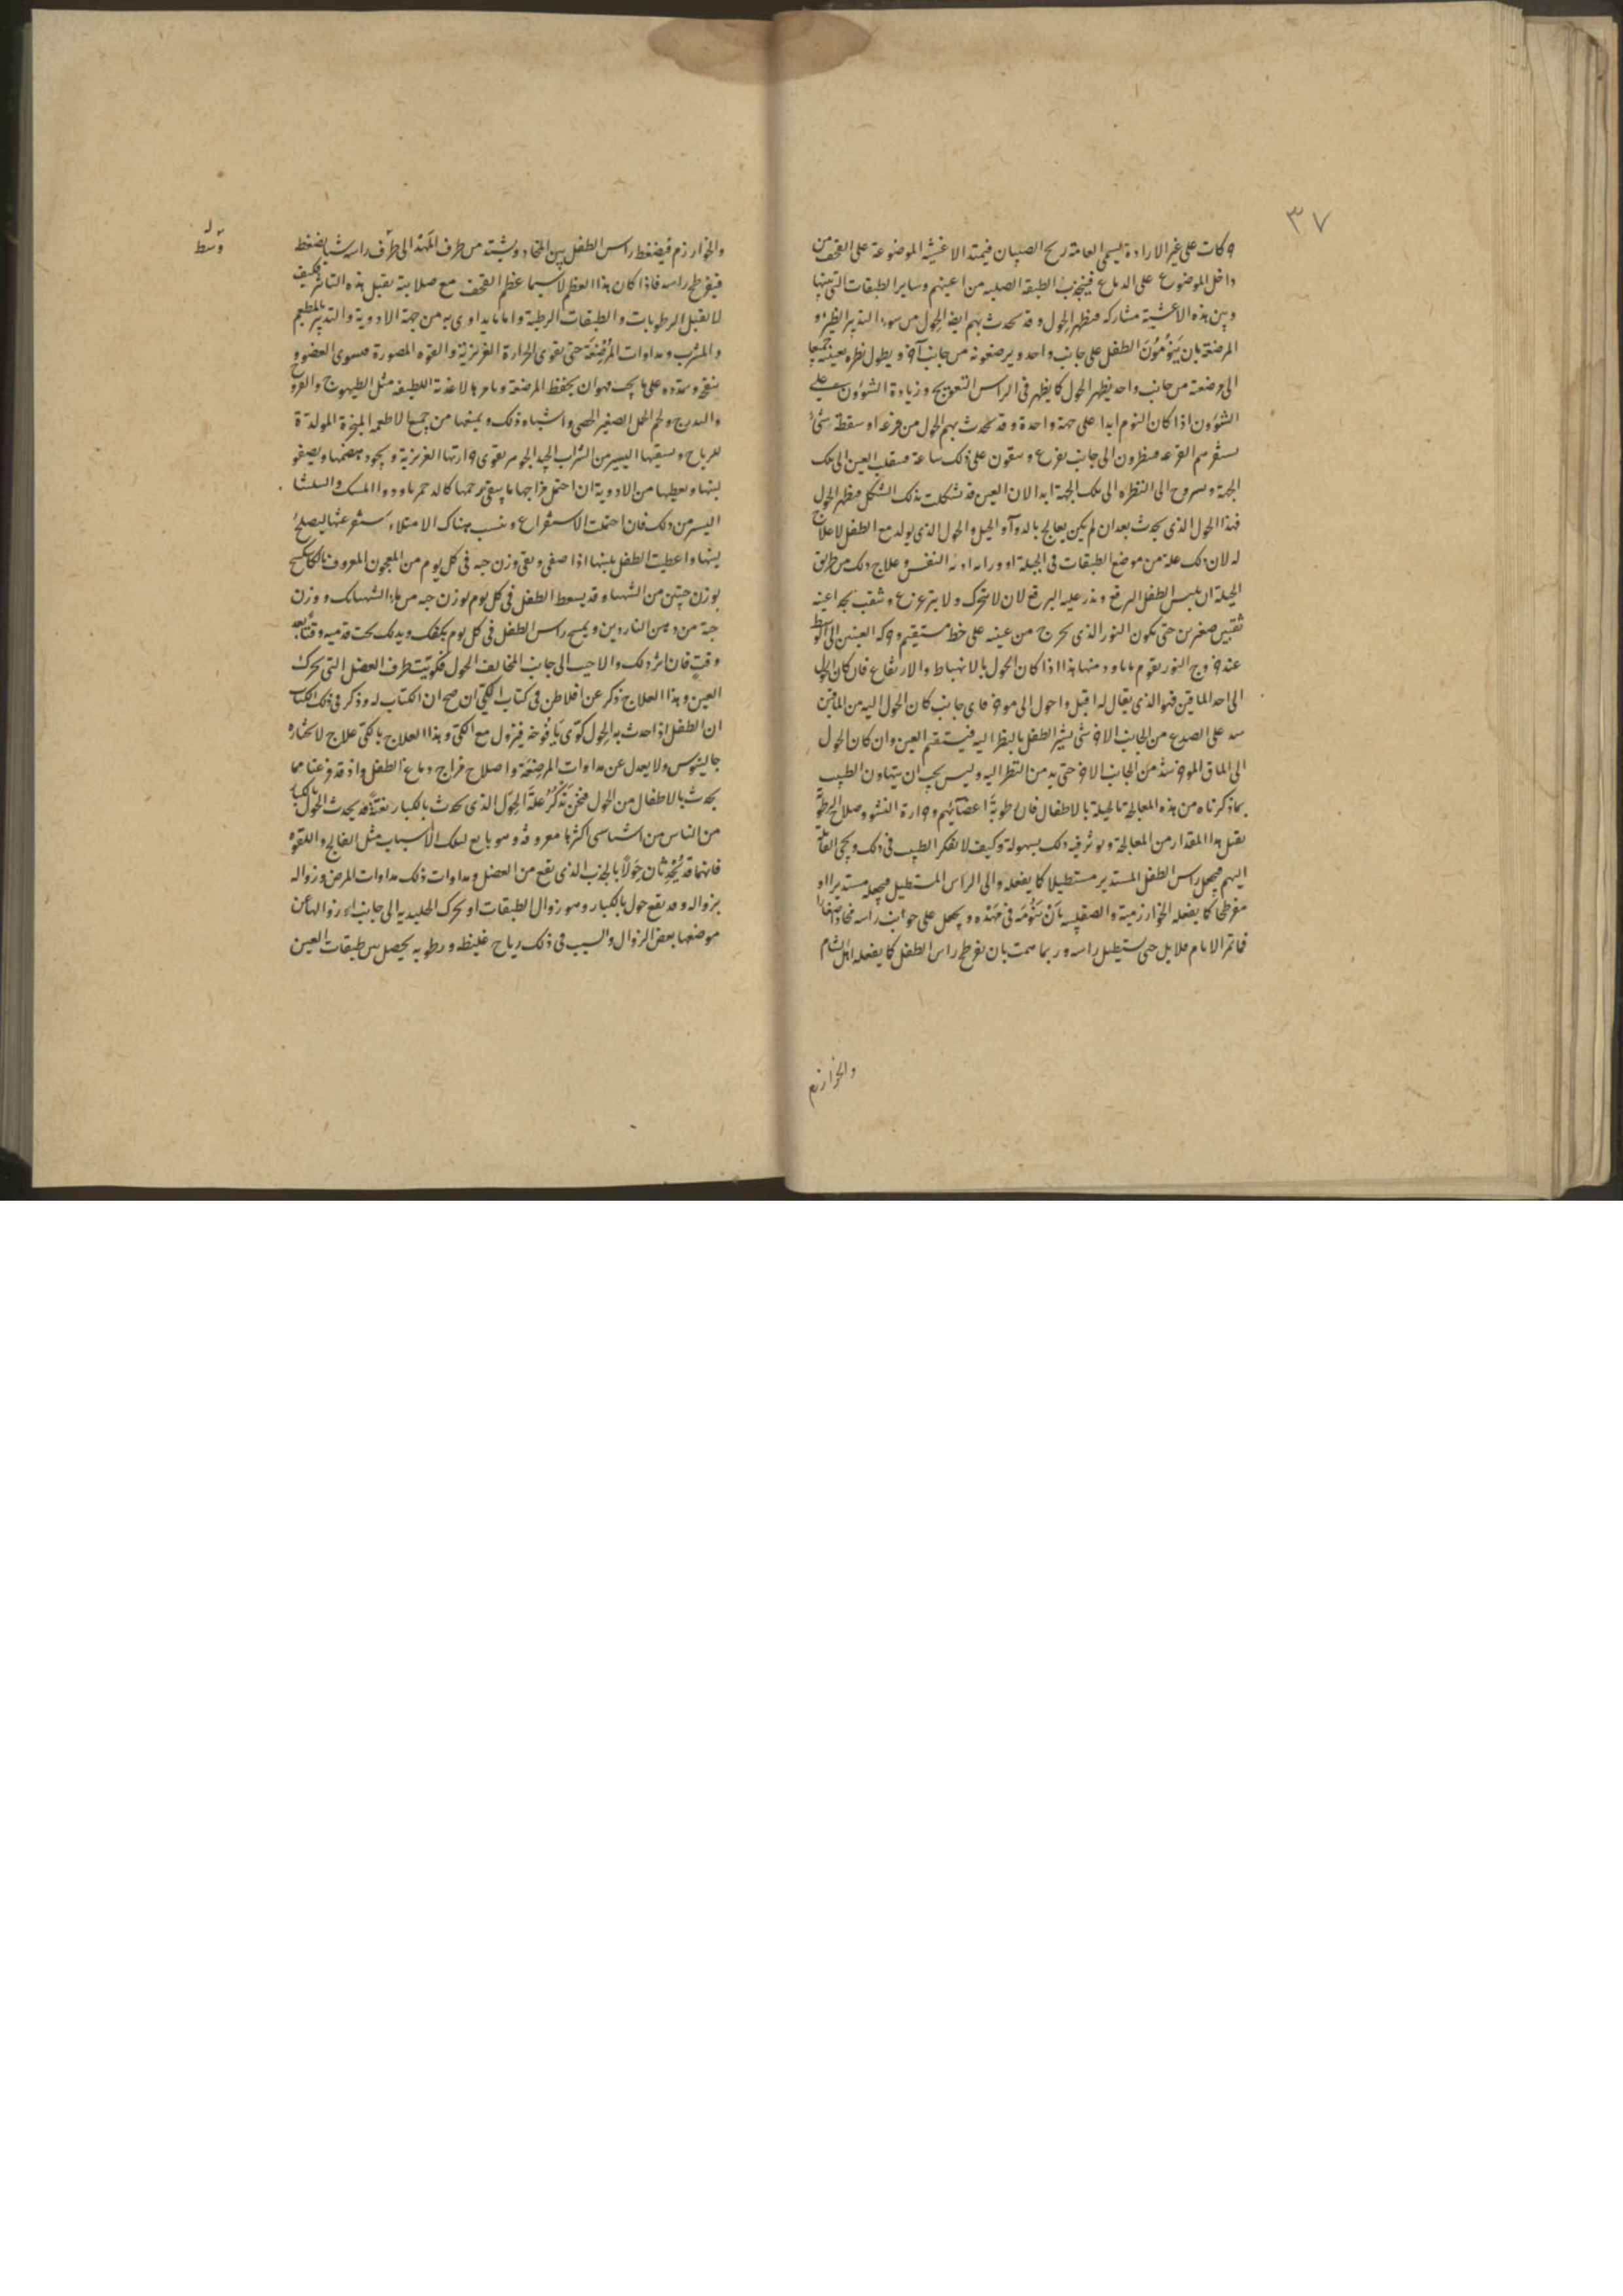 ٣٧
وكات على غير الارادة يسمى العامة ريح الصبيان فيمتد الاغشية الموضوعة على القحف من
داخل الموضوع على الدماغ فينجذب الطبقة الصلبه من اعينهم وساير الطبقات التى بينها
وبين هذه الاغشية مشاركه فيظهر الحول وقد يحدث بهم ايضا الحول من سوء التدبير الظئر و
المرضعة بان ينومون الطفل على جانب واحد ويرضعونه من جانب آخر ويطول نظره بعينيه جميعا
الى مرضعة من جانب واحد يظهر الحول كما يظهر فى الراس التعويج وزيادة الشؤون على
الشؤون اذا كان النوم ابدا على جهة واحدة وقد يحدث بهم الحول من فزعة او سقطة شئ
الفزعه فينظرون الى جانب بفزع ويبقون على ذلك ساعة فينقلب العين الى تلك
الجهة الى النظره الى تلك الجهة ابدا لان العين قد تشكلت بذلك الشكل فيظهر الحول
فهذا الحول الذى يحدث بعد ان لم يكن يعالج بالدوآء والحيل والحول الذى يولد مع الطفل لا علاج
له لان تلك علة من موضع الطبقات فى الجبلة وعلاج ذلك من طريق
الحيلة ان يلبس الطفل البرقع عليه البرقع لان لا يتحرك ولا يتزعزع وثقب بحد اعينه
ثقبين صغيرين حتى يكون النور الذى يخرج من عينه على خط مستقيم وحركة العينين الى الوسط
عند خروج النور يقوم هذا اذا كان الحول بالانهباط والارتفاع فان كان الحول
الى احد الماقين فهو الذى يقال له اقبل واحول الى موخر فاى جانب كان الحول اليه من الماقين
شد على الصدغ من الجانب الاخر شئ يشير الطفل بالنظر اليه فيستقيم العين وان كان الحول
الى الماق الموخر شد من الجانب الاخر حتى يديم النظر اليه وليس يجب ان يتهاون الطبيب
بما ذكرناه من هذه المعالجة بالحيلة بالاطفال فان رطوبة اعضآئهم وحرارة النشو وصلاح الرطوبة
يقبل هذا المقدار من المعالجة ويوثر فيه ذلك بسهولة وكيف لا يفكر الطبيب فى ذلك ويجئ القابلة
اليهم فيجعل راس الطفل المستدير مستطيلا كما يفعله والى الراس المستطيل فيجعله مستديرا او
مفرطحا كما يفعله الخوارزمية والصقلبية بان ينومه فى مهده ويجعل على جوانب راسه مخادا صغارا
فما تمر الايام قلايل حتى يستطيل راسه وربما همت بان يفرطح راس الطفل كما يفعله اهل الشام
والخوارزم
والخوارزم فيضغط راس الطفل بين المخاد ويشده من طرف المهد الى طرف راسه شبا يضغط
فيفرطح راسه فاذا كان هذا العظم لا سيما عظم القحف مع صلابته يقبل هذه التاثير فكيف
لا يقبل الرطوبات والطبقات الرطبة واما ما يداوى به من جهة الادوية والتدبير بالمطعم
والمشرب ومداوات المرضعة حتى يقوى الحرارة الغريزية والقوه المصورة فيسوى العضو و
ينفخ ويمدده على ما يجب فهو ان يحفظ المرضعة ويامرها لاغذية اللطيفه مثل الطيهوج والفروج
والدرج ولحم الحمل الصغير الخصى واشباه ذلك ويمنعها من جميع الاطعمه المبخرة المولدة
للرياح ويسقيها اليسير من الشراب الجيد الجوهر يقوى حرارتها الغريزية ويجود هضمها ويصفو
لبنها ويعطيها من الادوية ان احتمل مزاجها ما يبقى ودواء المسك والسلشا
اليسير من ذلك فان احتملت الاستفراغ هناك الامتلاء يستفرغها ليصلح
لبنها واعطيت الطفل بلبنها اذا صفى ونقى وزن حبه فى كل يوم من المعجون المعروف
بوزن حبتين من الشهبا وقد يسعط الطفل فى كل يوم بوزن حبه من ماء الشهبانك ووزن
حبة من دهن الناردين ويمسح راس الطفل فى كل يوم بكفك ويدلك تحت قدميه وقتا بعد
وقت فان اثر ذلك والا جيب الى جانب المخالف الحول فكويت طرف العضل التى يحرك
العين وهذا العلاج ذكر عن افلاطن فى كتاب الكى ان صح ان الكتاب له وذكر فى ذلك الكتاب
ان الطفل اذا حدث به الحول كوى يافوخه فيزول مع الكى وهذا العلاج بالكى علاج لا تختاره
جالينوس ولا يعدل عن مداوات المرضعة واصلاح مزاج دماغ الطفل واذ قد فرغنا مما
يحدث بالاطفال من الحول فنحن نذكر علة الحول الذى يحدث بالكبار بغتة قد يحدث الحول بالكبار
من الناس من اشيا سى اكثرها معروفة وهو تابع لتلك الاسباب مثل الفالج واللقوه
فانهما قد يحدثان حولا بالجذب الذى يقع من العضل ومداوات ذلك مداوات المرض وزواله
بزواله وقد يقع حول بالكبار وهو زوال الطبقات او تحرك الجليديه الى جانب او زوالها عن
موضعها بعض الزوال والسبب فى ذلك رياح غليظه ورطوبه يحصل بين طبقات العين